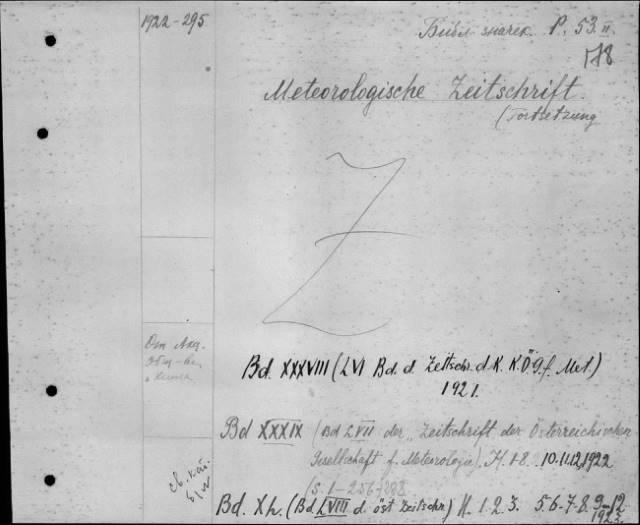 1922-295
Библ знател. P. 53. II.
178
Meteorologische Zeitschrift.
(Fortsetzung
Z
От Акц.
Общ-ва
Bd. XXXVIII (LVI Bd. d. Zeitschr. d. K. K. Ö G. f. Met.)
1921.
Bd XXXIX (Bd LVII der „Zeitschrift der Österreichischen
Gesellschaft f. Meteorologie), H. 1-8. 10.11.12, 1922
(S. 1-256,
Bd. XL. (Bd LVIII d. öst Zeitschr) H. 1. 2. 3. 5. 6.-7-8. 9-12
1923